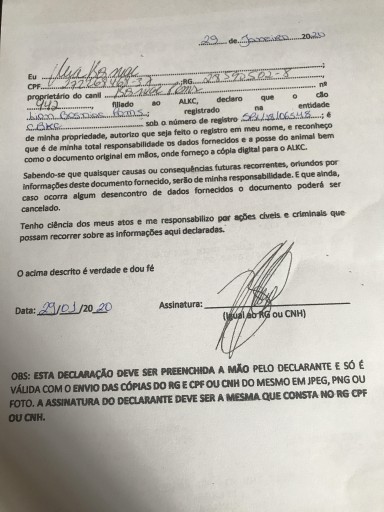 29 de Janeiro 2020
Eu
CPF RG 28590502-8
proprietário do canil nº
942, filiado ao ALKC, declaro que o cão
registrado na entidade
CBKC sob o número de registro ; é
de minha propriedade, autorizo que seja feito o registro em meu nome, e reconheço
que é de minha total responsabilidade os dados fornecidos e a posse do animal bem
como o documento original em mãos, onde forneço a cópia digital para o ALKC.
Sabendo-se que quaisquer causas ou consequências futuras recorrentes, oriundos por
informações deste documento fornecido, serão de minha responsabilidade. E que ainda,
caso ocorra algum desencontro de dados fornecidos o documento poderá ser
cancelado.
Tenho ciência dos meus atos e me responsabilizo por ações cíveis e criminais que
possam recorrer sobre as informações aqui declaradas.
O acima descrito é verdade e dou fé
Data: 29/01/2020 Assinatura:
(Igual ao RG ou CNH)
OBS: ESTA DECLARAÇÃO DEVE SER PREENCHIDA A MÃO PELO DECLARANTE E SÓ É
VÁLIDA COM O ENVIO DAS CÓPIAS DO RG E CPF OU CNH DO MESMO EM JPEG, PNG OU
FOTO. A ASSINATURA DO DECLARANTE DEVE SER A MESMA QUE CONSTA NO RG CPF
OU CNH.